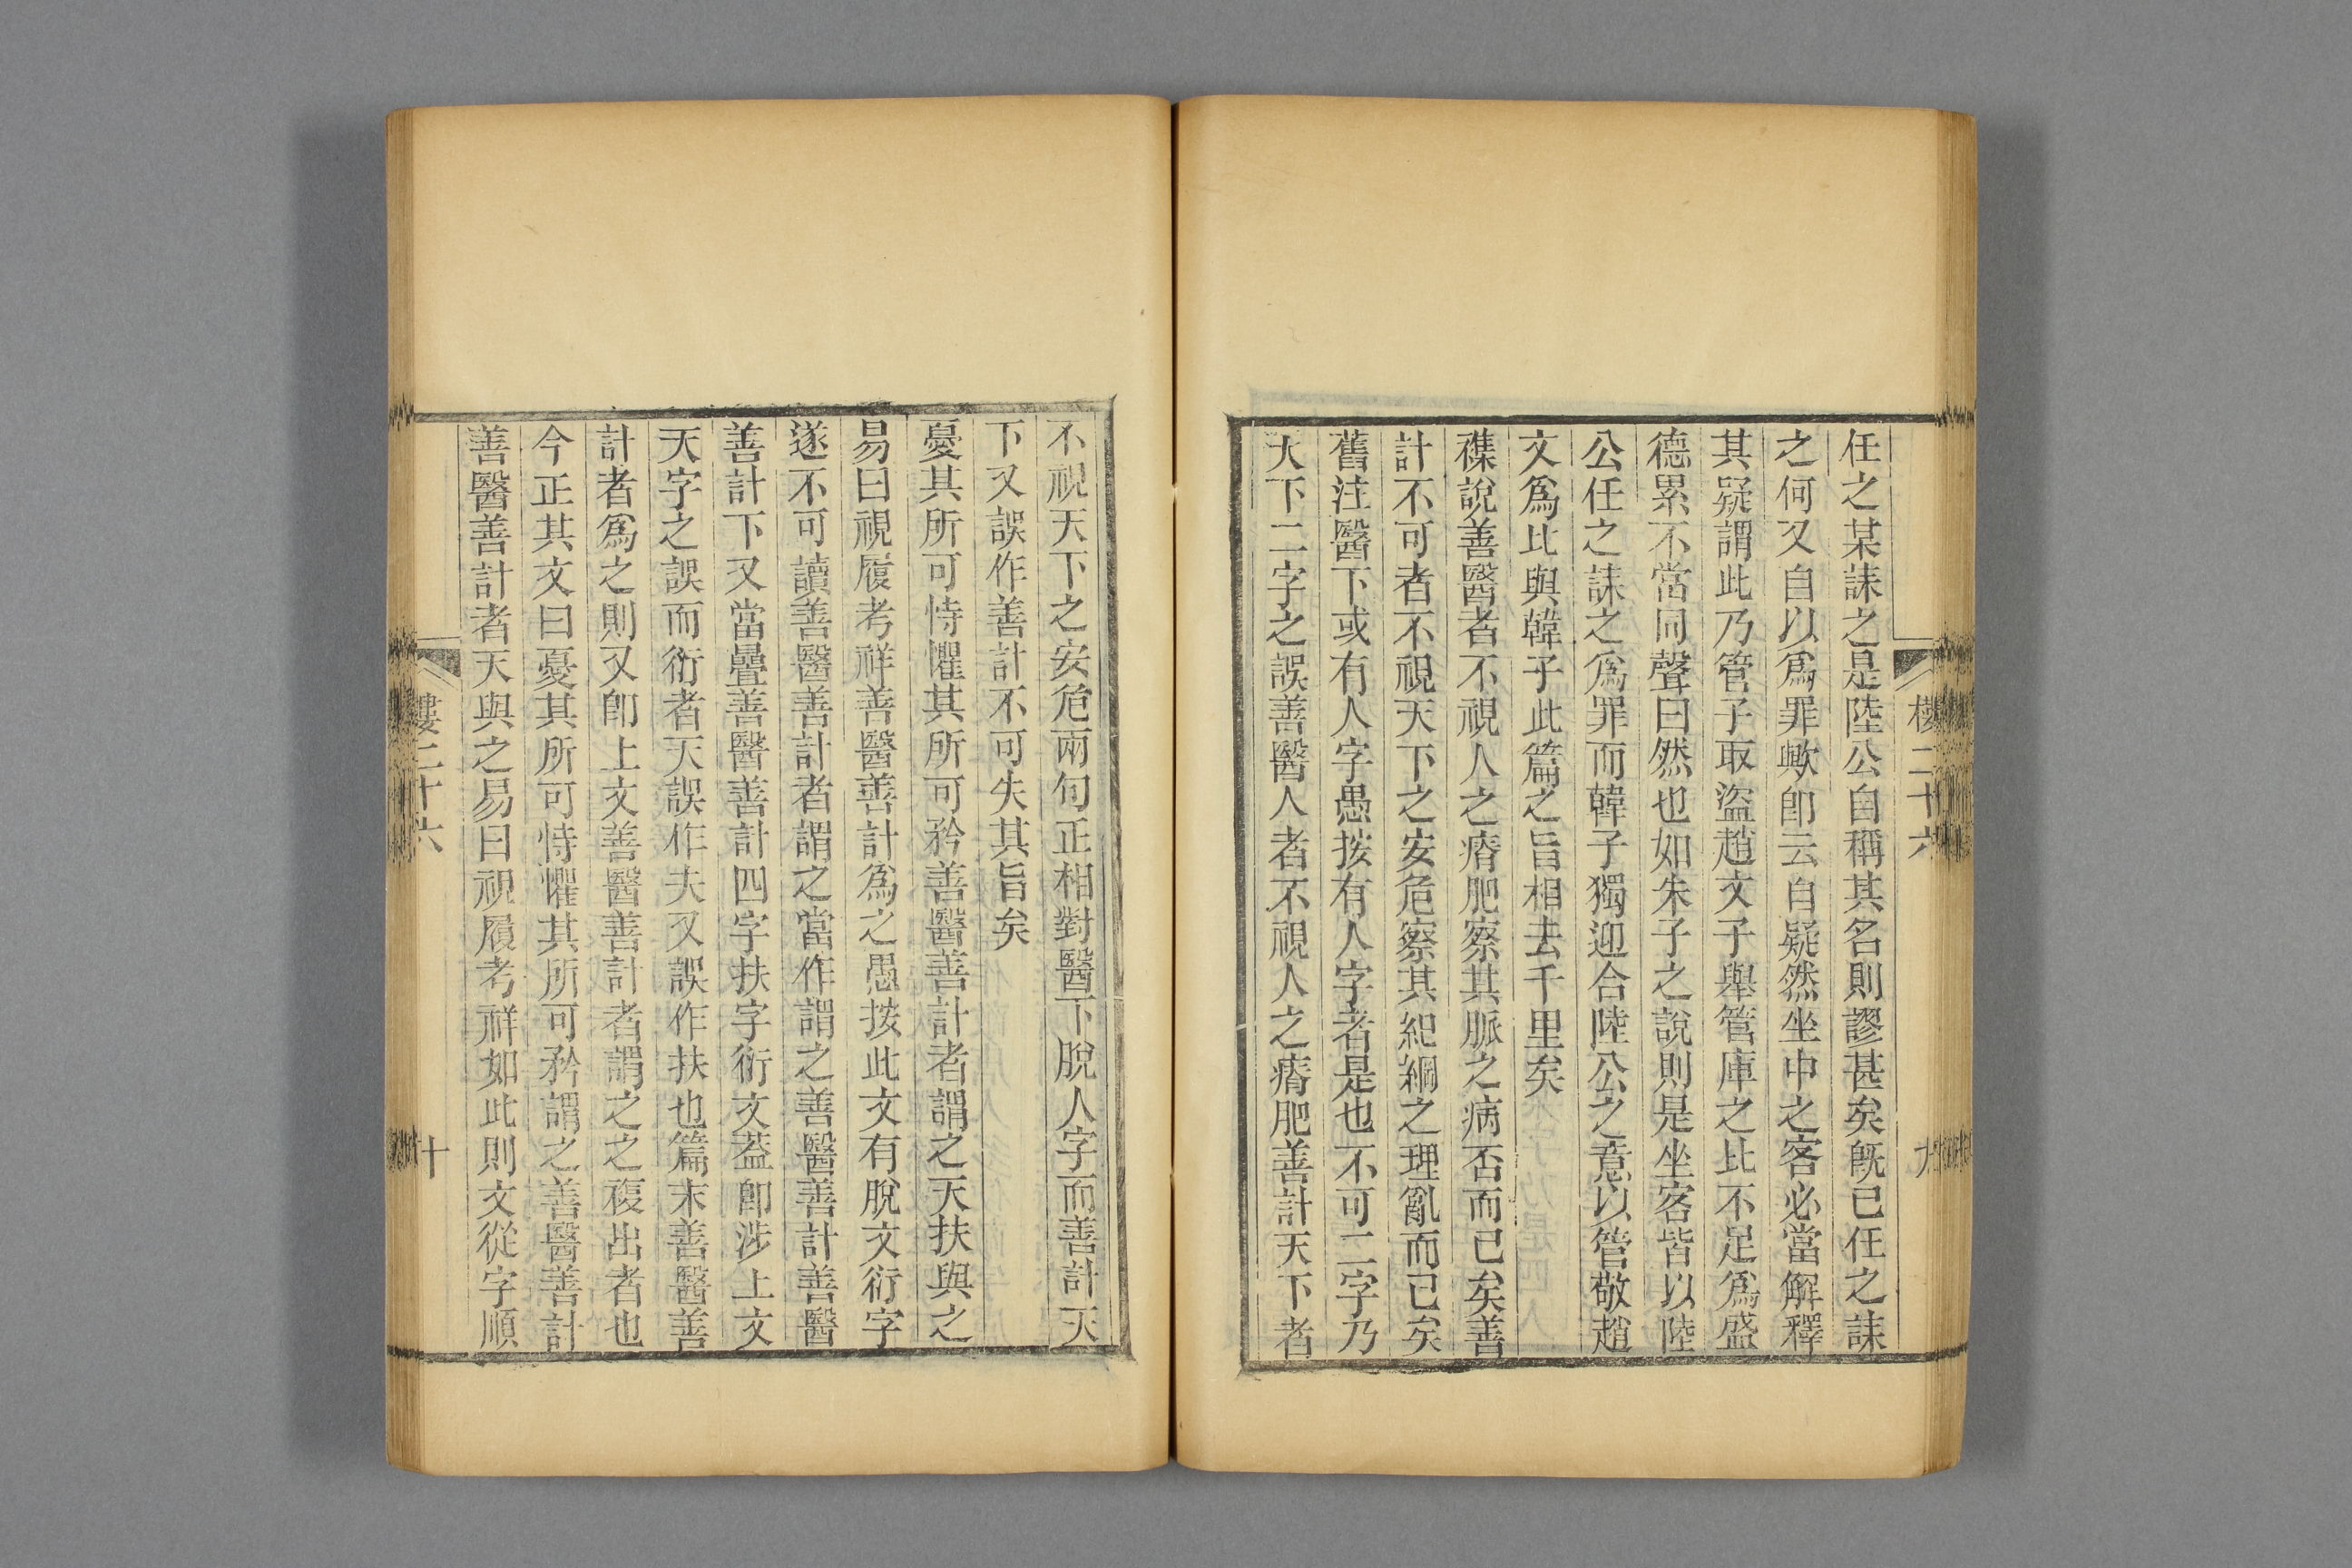 任之某誄之是陸公自稱其名則謬甚矣旣已任之誄
之何又自以爲罪歟卽云自疑然坐中之客必當解釋
其疑謂此乃管子取盜趙文子舉管庫之比不足爲盛
德累不當同聲曰然也如朱子之說則是坐客皆以陸
公任之誄之爲罪而韓子獨迎合陸公之意以管敬趙
文爲比與韓子此篇之旨相去千里矣
襍說善醫者不視人之瘠肥察其脈之病否而已矣善
計不可者不視天下之安危察其紀綱之理亂而已矣
舊注醫下或有人字愚按有人字者是也不可二字乃
天下二字之誤善醫人者不視人之瘠肥善計天下者
樓二十六
九
不視天下之安危兩句正相對醫下脫人字而善計天
下又誤作善計不可失其旨矣
憂其所可恃懼其所可矜善醫善計者謂之天扶與之
易曰視履考祥善醫善計爲之愚按此文有脫文衍字
遂不可讀善醫善計者謂之當作謂之善醫善計善醫
善計下又當疊善醫善計四字扶字衍文葢卽涉上文
天字之誤而衍者天誤作夫又誤作扶也篇末善醫善
計者爲之則又卽上文善醫善計者謂之之複出者也
今正其文曰憂其所可恃懼其所可矜謂之善醫善計
善醫善計者天與之易曰視履考祥如此則文從字順
樓二十六
十